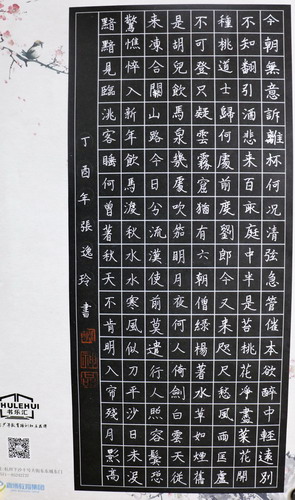 今朝無意訴離杯何況清弦急管催本欲醉中輕遠別
不知翻引酒悲來百畝庭中半是苔桃花淨盡菜花開
種桃道士歸何處前度劉郎今又來咫尺愁風雨匡廬
不可登只疑雲霧窟猶有六朝僧綠楊著水草如煙舊
是胡兒飲馬泉幾處吹笳明月夜何人倚劍白雲天從
來凍合關山路今日分流漢使前莫遣行人照容鬢恐
驚憔悴入新年飲馬渡秋水水寒風似刀平沙日未沒
黯黯見臨洮客睡何曾著秋天不肯明入帘殘月影高
丁酉年張逸玲書
HULEHUI
书乐汇